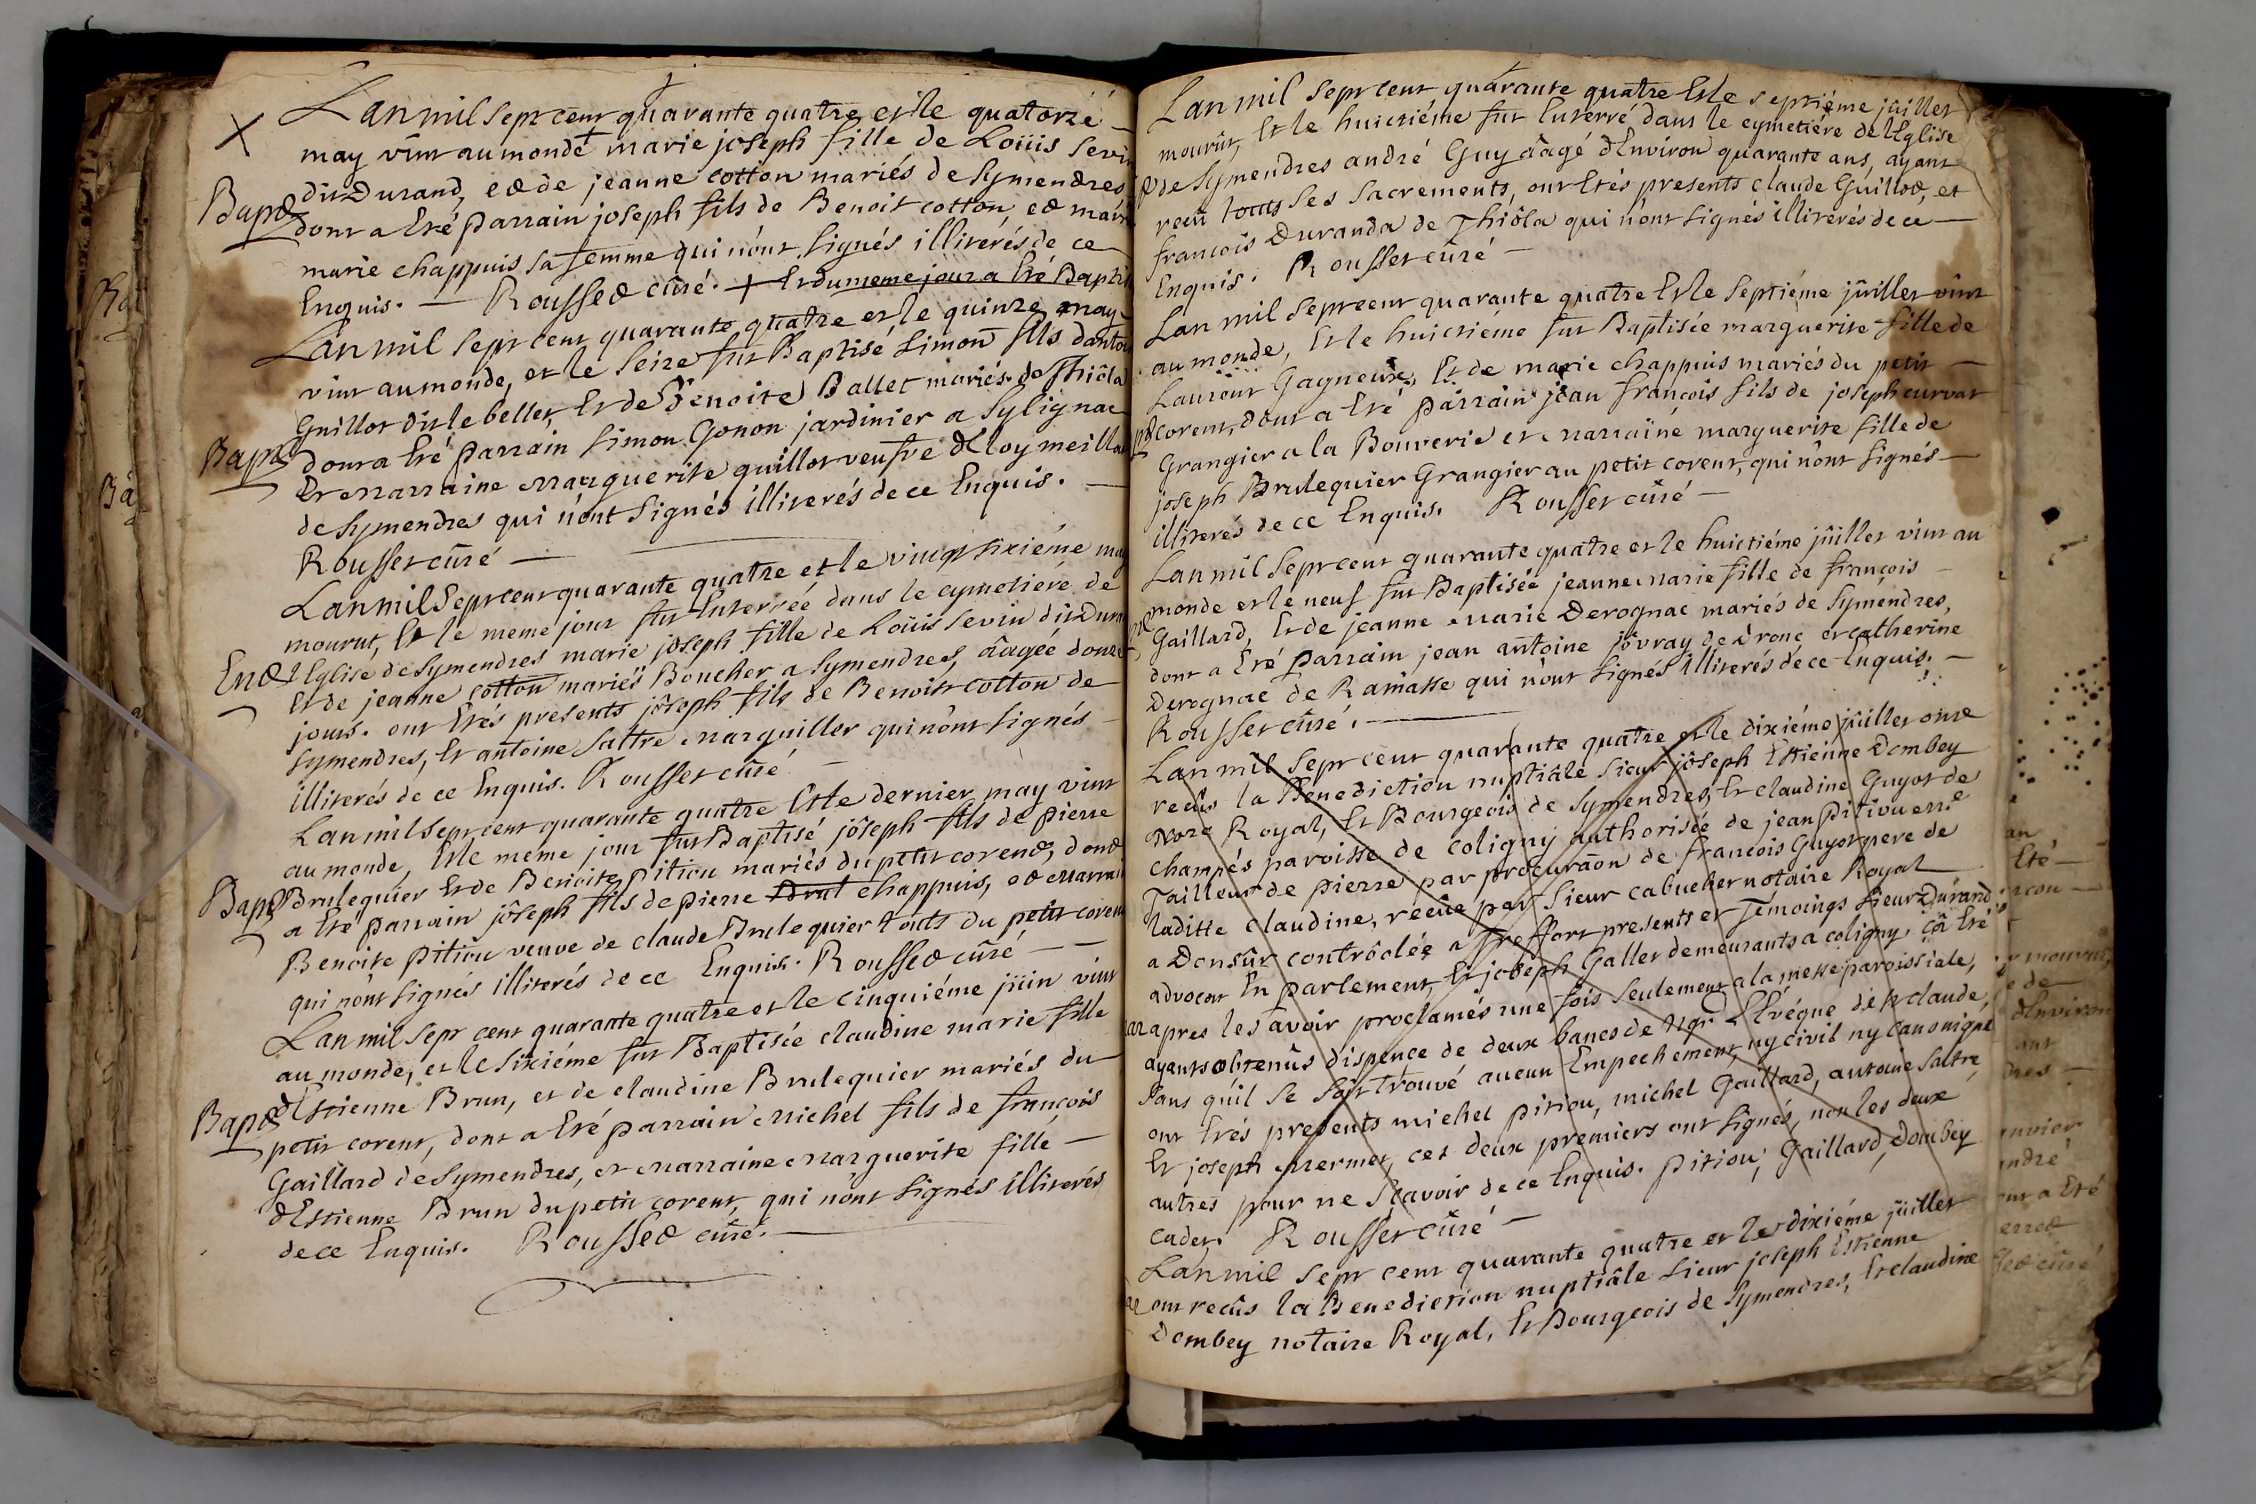 Lan mil sept cent quarante quatre et le quatorzé
may vint au monde + marie joseph fille de Loüis Sevin
dit Durand, et de jeanne cotton mariés de Symendres
Bapt dont a Eté parrain joseph fils de Benoit cotton, et
marie chappuis sa femme qui nônt signés illiterés de ce
Enquis. Rousset cûré. + Et du meme jour a Eté Baptis
Lan mil sept cent quarante quatre et le quinze may
vint au monde, et le seize fut Baptisé simon fils dantoi
Guillot dit le bellet, Et de Benoite Ballet mariés de Thiôla
Bapt dont a Eté parrain simon Gonon jardinier a Sylignac
Et marraine marguerite guillot veufve dEloy meilla
de Symendres qui nônt signés illiterés de ce Enquis.
Rousset cûré
Lan mil sept cent quarante quatre et le vingt sixiéme may
mourut, Et le meme jour fut Enterrée dans le cymetiére de
Ent lEglise de Symendres marie jôseph fille de Loüis sevin dit Dura
Et de jeanne cotton mariés Boucher a Symendres, âagée douze
jours. ont Etés presents jôseph fils de Benoist cotton de
Symendres, Et antoine saltre marguiller qui nônt signés
illiterés de ce Enquis. Rousset cûré
Lan mil sept cent quarante quatre Et le dernier may vint
au monde, Et le meme jour fut Baptisé jôseph fils de pierre
Bapt Brulequier Et de Benoite pitiou mariés du petit corent, dont
a Eté parrain jôseph fils de pierre Brul chappuis, et marrai
Benoite pitiou veuve de claude Brulequier touts du petit corent
qui nônt signés illiterés de ce Enquis. Rousset cûré
Lan mil sept cent quarante quatre et le cinquiéme jüin vint
au monde, et le sixiéme fut Baptisée claudine marie fille
Bapt dEstienne Brun, et de claudine Brulequier mariés du
petit corent, dont a Eté parrain michel fils de françois
Gaillard de Symendres, et marraine marguerite fille
dEstienne Brun du petit corent, qui nônt signés illiterés
de ce Enquis. Rousset cûré.
Lan mil sept cent quarante quatre Et le septiéme jûillet
mourût, Et le huictiéme fut Enterré dans le cymetiére de lEglise
de Symendres andré Guy âagé dEnviron quarante ans, ayant
reçû touts ses sacrements, ont Etés presents claude Guillot, et
françois Duranda de Thiôla qui nônt signés illiterés de ce
Enquis. Rousset cûré
Lan mil sept cent quarante quatre Et le septiéme jûillet vint
au monde, Et le huictiéme fut Baptisée marguerite fille de
Laurent Gagneux, Et de marie chappuis mariés du petit
corent, dont a Eté parrain jean françois fils de joseph curvat
Grangier a la Bouverie et marraine marguerite fille de
joseph Brulequier Grangier au petit corent, qui nônt signés
illiterés de ce Enquis. Rousset cûré
Lan mil sept cent quarante quatre et le huictiéme jûillet vint au
monde et le neuf fut Baptisée jeanne marie fille de françois
Gaillard, Et de jeanne marie Derognac mariés de Symendres,
dont a Eté parrain jean antoine jôvray de drone et catherine
Derognac de Ramasse qui nônt signés illiterés de ce Enquis.
Rousset cûré.
Lan mil sept cent quarante quatre et le dixiéme jûillet onse
recûs la Benediction nuptiâle sieur jôseph Estienne Dombey
Nore Royal, Et Bourgeois de Symendres, Et claudine Guyot de
champés paroisse de coligny authorisée de jean pitiou
Tailleur de pierre par procurãon de francois Guyot pere de
laditte claudine, recûe par sieur cabuchet notaire Royal
a Donsûr contrôolée a Treffort presents et Temoings sieur Dûrand
advocat En parlement, Et joseph Gallet demeurants a coligny. çâ Eté
apres les avoir proclamés une fois seulement a la messe paroissiale,
ayants obtenûs dispence de deux bancs de Mgr LEvéque de st claude,
sans quil se soit trouvé aucun Empechement ny civil ny canonique
ont Etés presents michel pitiou, michel Gaillard, antoine saltre
Et joseph mermet, ces deux premiers ont signés, non les deux
autres pour ne sçavoir de ce Enquis. pitiou, Gaillard, Dombey
cadet. Rousset cûré
Lan mil sept cent quarante quatre et le dixiéme jûillet
ont recûs la Benediction nuptiâle sieur joseph Estienne
Dombey notaire Royal, Et Bourgeois de Symendres, Et claudine